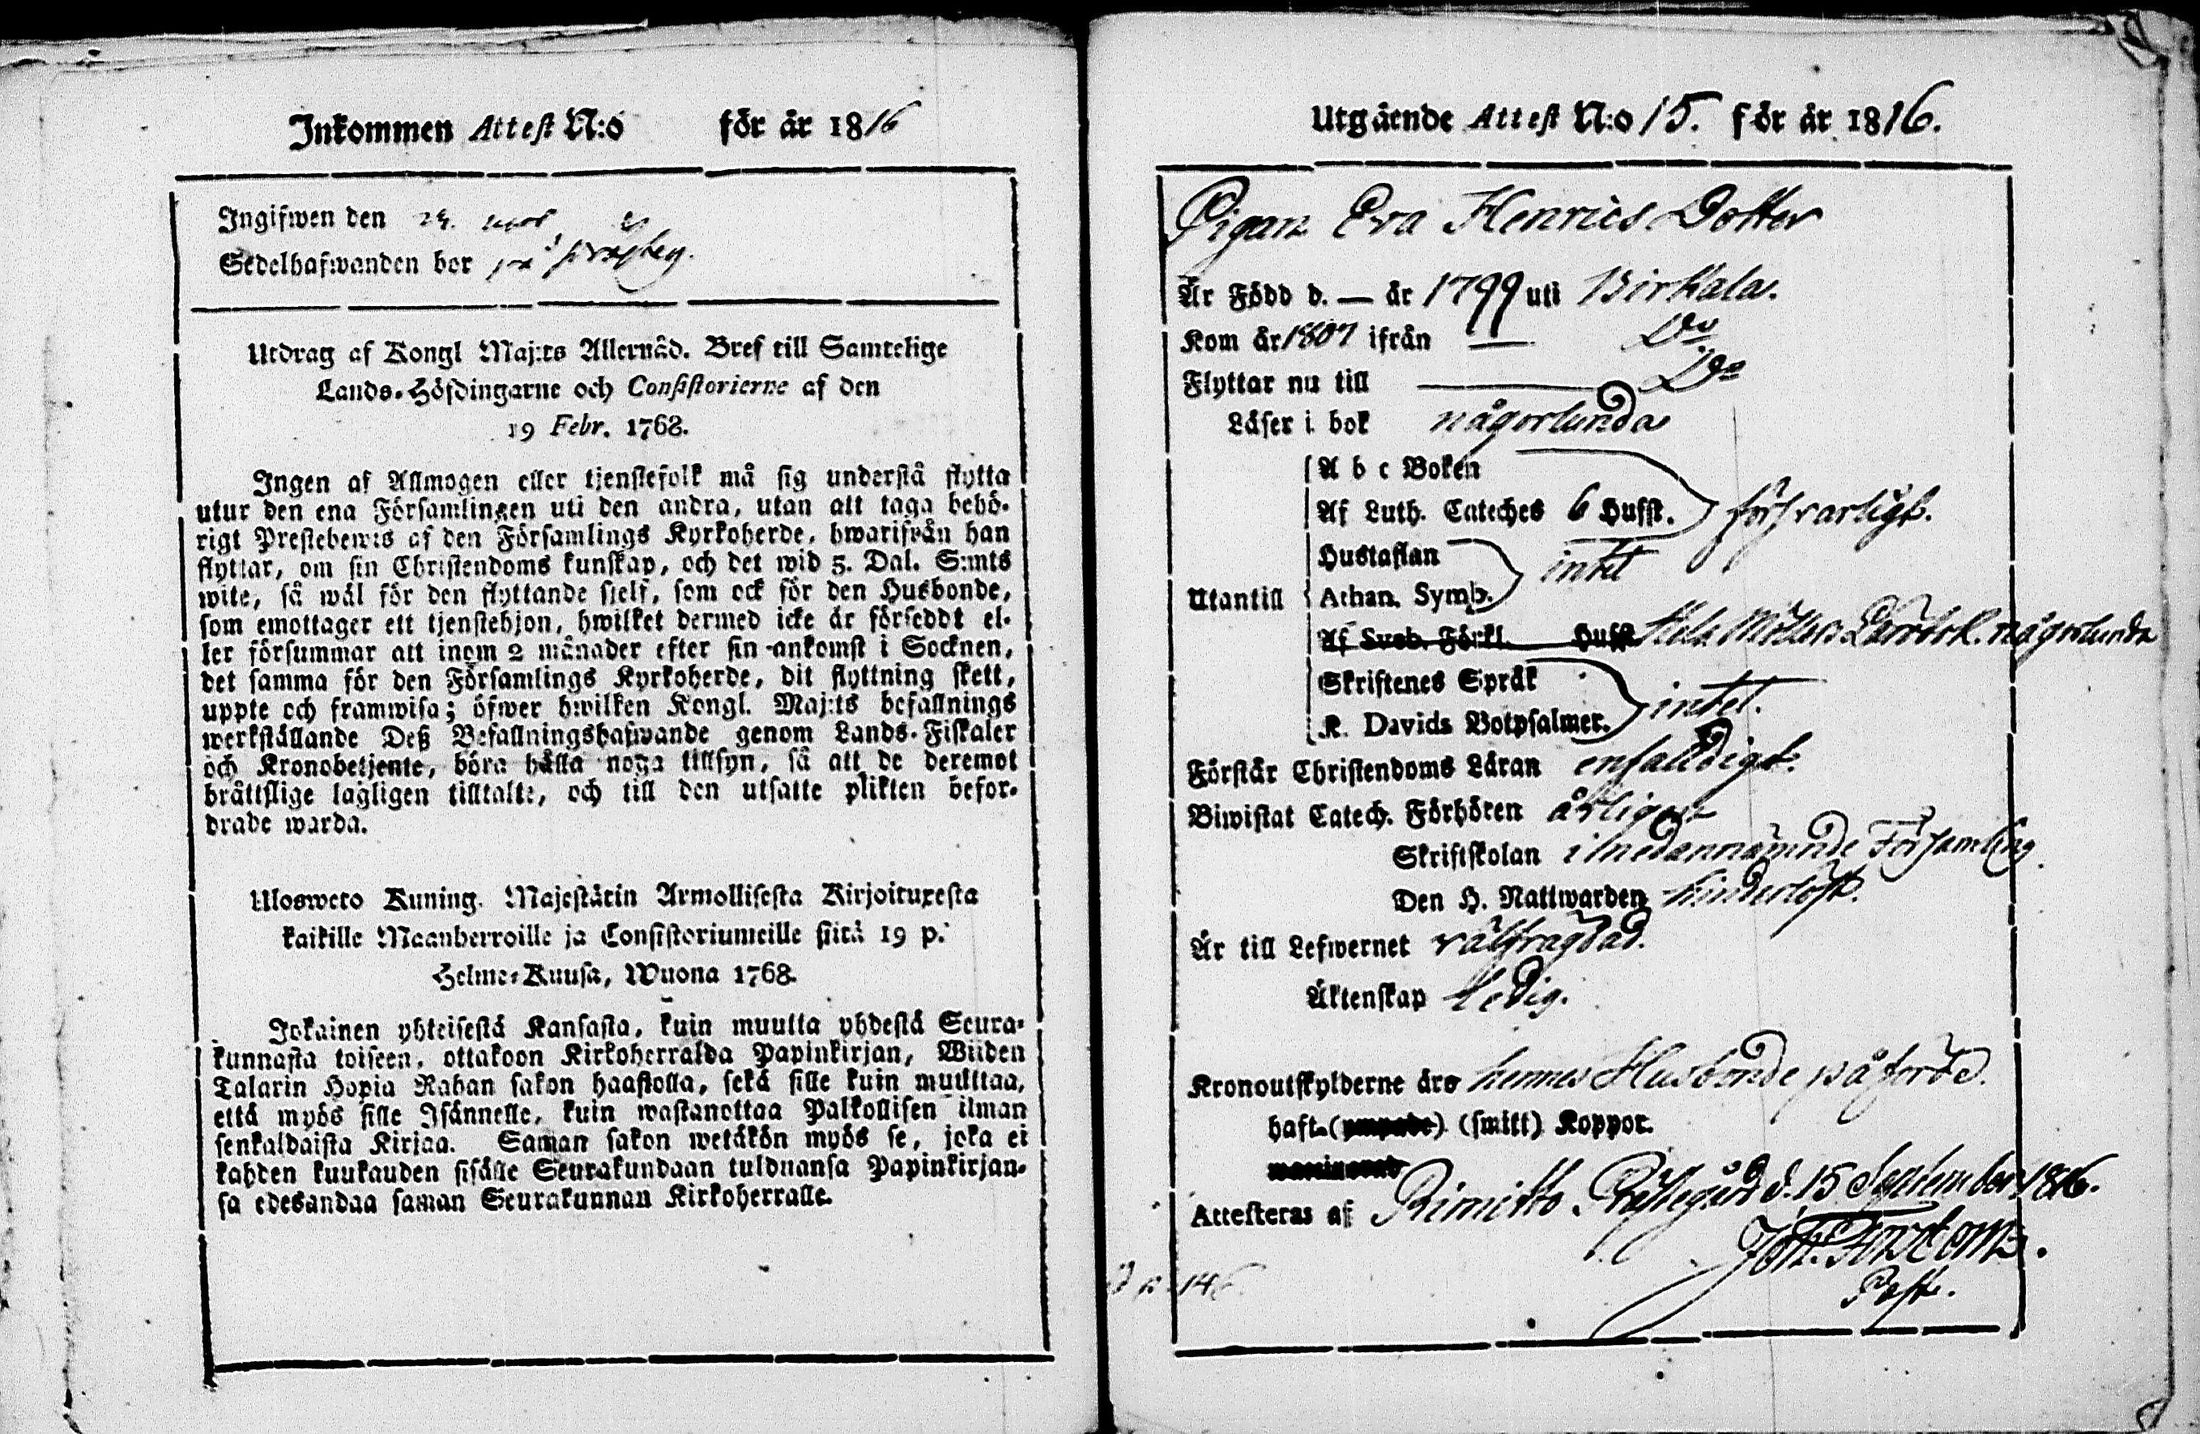 Inkommen Attest N:o för år 1816
Ingifwen den 24. novr
Sedelhafwanden bor på prästeg.
Utdrag af Kongl Maj:ts Allernåd. Bref till Samtelige
Lands-Höfdingarne och Consistorierne af den
19 Febr. 1768.
Ingen af Allmogen eller tjenstefolk må sig understå flytta
utur den ena Församlingen uti den andra, utan att taga behö-
rigt Prestebewis af den Församlings Kyrkoherde, hwarifrån han
flyttar, om sin Christendoms kunskap, och det wid 5. Dal. S:mts
wite, så wäl för den flyttande sjelf, som ock för den Husbonde,
som emottager ett tjenstehjon, hwilket dermed icke är förseddt el-
ler försummar att inom 2 månader efter sin ankomst i Socknen,
det samma för den Församlings Kyrkoherde, dit flyttning skett,
uppte och framwisa; öfwer hwilken Kongl. Maj:ts befallnings
werkställande Deß Befallningshafwande genom Lands-Fiskaler
och Kronobetjente, böra hålla noga tillsyn, så att de deremot
bråttslige lagligen tilltalte, och till den utsatte plikten befor-
drade warda.
Ulosweto Kuning. Majestätin Armollisesta Kirjoituxesta
kaikille Maanherroille ja Consistoriumeille siitä 19 p.
Helme-Kuusa, Wuona 1768.
Jokainen yhteisestä Kansasta, kuin muutta yhdestä Seura-
kunnasta toiseen, ottakoon Kirkoherralda Papinkirjan, Wiiden
Talarin Hopia Rahan sakon haastolla, sekä sille kuin muuttaa,
että myös sille Isännelle, kuin wastanottaa Palkollisen ilman
senkaldaista Kirjaa. Saman sakon wetäkön myös se, joka ei
kahden kuukauden sisälle Seurakundaan tulduansa Papinkirjan-
sa edesandaa saman Seurakunnan Kirkoherralle.
Utgående Attest N:o 15. för år 1816.
Pigan Eva Henrics Dotter
Är Född d. — år 1799 uti Birkala.
Kom år 1807 ifrån — Do
Flyttar nu till — Do
Läser i bok någorlunda
A b c Boken
Af Luth. Cateches 6 Hufst. försvarligt.
Hustaflan
Utantill Athan. Symb. intet
Af Sveb. Förkl. Hufst. Hela Möllers Lärobok någorlunda
Skriftenes Språk
K. Davids Botpsalmer. intet.
Förstår Christendoms Läran enfalldigt.
Biwistat Catech. Förhören årligen
Skriftskolan i nedannämnde Församling
Den H. Nattwarden hinderlöst.
Är till Lefwernet välfrägdad.
Äktenskap ledig.
Kronoutskylderne äro hennes Husbonde påförde.
haft (smitt) Koppor.
Attesteras af Rimitto Prästegård d. 15 September 1816.
Joh.
Past.
146